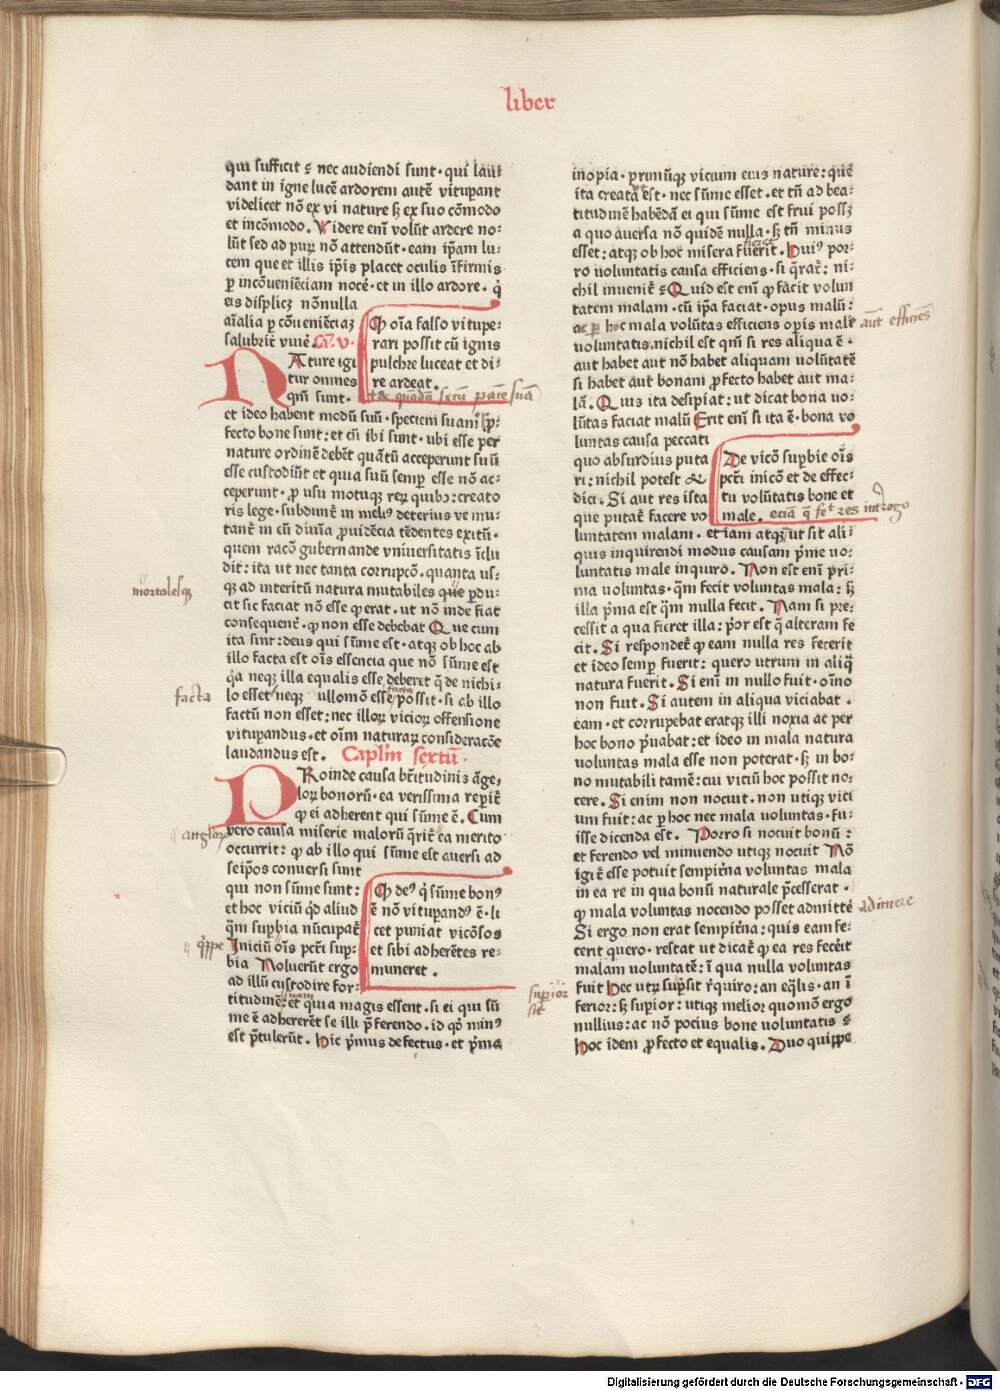 liber
qui sufficit ⁊ nec audiendi sunt· qui lau
dant in igne lucē ardorem autē vitupant
videlicet nō ex vi nature sꝫ ex suo cōmodo
et incōmodo. Videre eni volūt ardere no-
lūt sed ad pur nō attendūt· eam ip̄am lu-
cem que et illis ip̄is placet oculis īfirmis
ꝑ incōueniēciam nocē· et in illo ardore· q̄
eis displicꝫ nōnulla
aīalia ꝑ cōueniēciaꝫ
salubrit̄ viuē. Ca. v.
Ꝙ oīa falso vitupe-
rari possit cū ignis
pulchre luceat et di-
re ardeat.
NAture igi
tur omnes
qm̄ sunt·
et ideo habent modū suū· speciem suam pro-
fecto bone sunt: et cū ibi sunt· ubi esse per
nature ordinē debēt quātū acceperunt suū
esse custodiūt et quia suū semper esse nō ac-
ceperunt· ꝓ usu motuqꝫ reꝝ quibꝫ: creato
ris lege· subdunt̄ in melius deterius ve mu-
tant̄ in cū diuīa ꝓuidēcia tēdentes exitū·
quem racō gubernande vniuersitatis īclu
dit: ita ut nec tanta corrupcō· quanta us-
qꝫ ad interitū natura mutabiles que ꝑdu-
cit sic faciat nō esse ꝙ erat· ut nō inde fiat
consequent̄· ꝙ non esse debebat Que cum
ita sint: deus qui sūme est· atqꝫ ob hoc ab
illo facta est oīs essencia que nō sūme est
q̄a neqꝫ illa equalis esse deberet q̄ de nichi-
lo esset neqꝫ ullomō esse possit· si ab illo
factū non esset: nec illoꝝ vicioꝝ offensione
vituꝑandus· et oīm naturaꝝ consideracōe
laudandus est. Capl'm sextū·
PRoinde causa btītudinis āge-
loꝝ bonorū· ea verissima reperit̄
ꝙ ei adherent qui sūme ē. Cum
vero causa miserie malorū q̄rit̄ ea merito
occurrit: ꝙ ab illo qui sūme est auersi ad
seipōs conuersi sunt
qui non sūme sunt:
et hoc viciū qd aliud
q̄m suꝑbia nūcupat̄
Iniciū oīs pct̄i suꝑ-
bia Noluerūt ergo
ad illū custodire for-
Ꝙ deus q̄ sūme bonus
ē nō vituꝑandus ē· li
cet puniat vicōsos
et sibi adherētes re-
muneret.
titudinē: et quia magis essent· si ei qui sū
me ē adhererēt se illi p̄ferendo· id qd minus
est p̄tulerūt. Hic p̄mus defectus· et p̄ma
inopia· primūqꝫ vicium eius nature: que
ita creata est· nec sūme esset· et tn̄ ad bea-
titudinē habēdā ei qui sūme est frui possꝫ
a quo auersa nō quidē nulla· sꝫ tn̄ minus
esset: atqꝫ ob hoc misera fuerit. Huius por-
ro voluntatis causa efficiens· si q̄rat̄: ni-
chil inuenit̄ ⁊ Quid est eni ꝙ facit volun
tatem malam· cū ip̄a faciat· opus malū:
ac ꝑ hoc mala volūtas efficiens oꝑis mali
voluntatis· nichil est qm̄ si res aliqua ē·
aut habet aut nō habet aliquam volūtatē
si habet aut bonam ꝓfecto habet aut ma-
lā. Quis ita desipiat: ut dicat bona uo-
lūtas faciat malū Erit eni si ita ē· bona vo
luntas causa peccati
quo absurdius puta
ri: nichil potest ⁊
dici. Si aut res ista
que putat̄ facere vo
De vicō suꝑbie oīs
pct̄i inicō et de effec-
tu volūtatis bone et
male.
luntatem malam· et iam atqꝫ ut sit ali-
quis inquirendi modus causam p̄me uo-
luntatis male inquiro. Non est eni pri-
ma voluntas· q̄m fecit voluntas mala: sꝫ
illa p̄ma est q̄m nulla fecit. Nam si pre-
cessit a qua fieret illa: p̄or est q̄ alteram fe
cit. Si respondet̄ ꝙ eam nulla res fecerit
et ideo semper fuerit: quero utrum in aliq̄
natura fuerit. Si eni in nullo fuit· oīno
non fuit. Si autem in aliqua viciabat·
eam· et corrupebat eratqꝫ illi noxia ac per
hoc bono p̄uabat: et ideo in mala natura
uoluntas mala esse non poterat· sꝫ in bo-
no mutabili tamē: cui viciū hoc possit no-
cere. Si enim non nocuit· non utiqꝫ vici
um fuit: ac ꝑ hoc nec mala voluntas· fu-
isse dicenda est. Porro si nocuit bonū:
et ferendo vel minuendo utiqꝫ nocuit Nō
igit̄ esse potuit sempit̄na voluntas mala
in ea re in qua bonū naturale p̄cesserat·
ꝙ mala voluntas nocendo posset admitte
Si ergo non erat sempit̄na: quis eam fe-
cerit quero· restat ut dicat̄ ꝙ ea res fecerit
malam voluntatē: ī qua nulla voluntas
fuit Hec utꝝ suꝑsit r̄quiro: an eq̄lis· an ī
ferior: sꝫ suꝑior: utiqꝫ melior quomō ergo
nullius: ac nō pocius bone voluntatis ⁊
Hoc idem ꝓfecto et equalis. Duo quippe
mortalesqꝫ
facta
angloꝝ
q̄ppe
superior
sit
aut efficiens
adimere
Digitalisierung gefördert durch die Deutsche Forschungsgemeinschaft - DFG